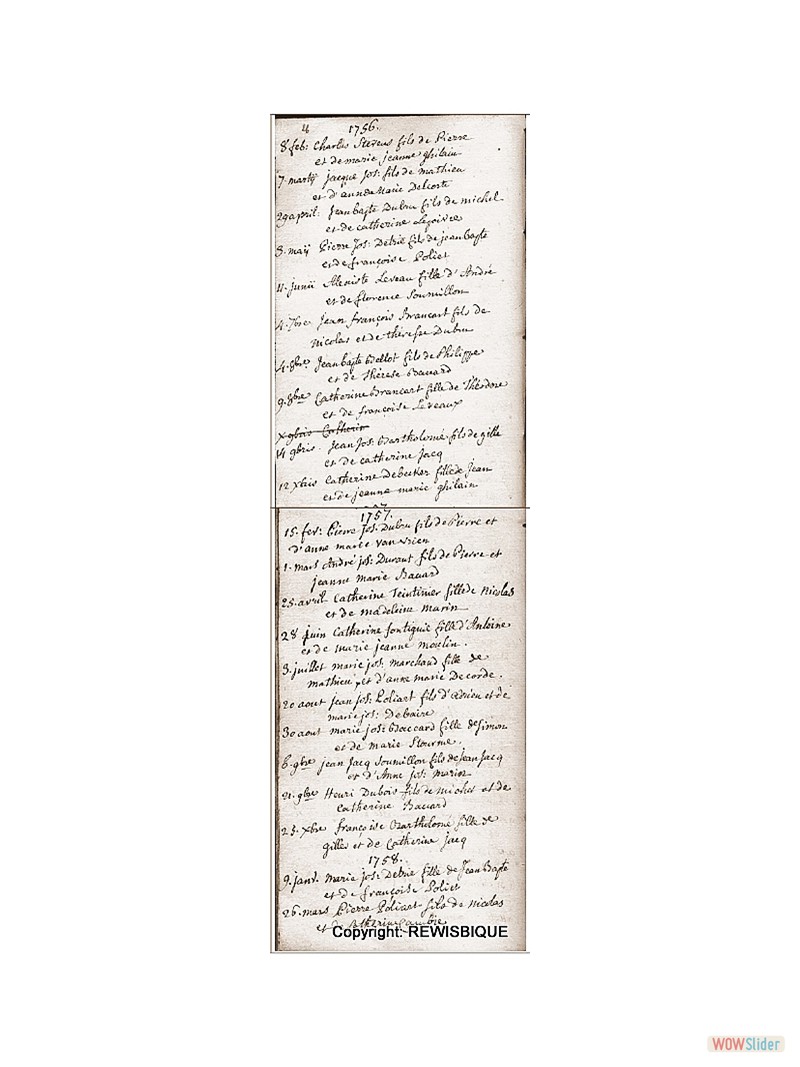 4 1756.
8 feb: Charles Stevens fils de Pierre
et de marie jeanne ghilain
7 martÿ jacque jos: fils de mathieu
et d'anne Marie Delcorte
29 april: Jean bapte Dubru fils de michel
et de catherine Leçoivre
3. maÿ Pierre Jos: Debrie fils de jean bapte
et de françoise Poliet
11. junii Leveau fille d'André
et de florence Soumillon
4. 7bre Jean François Brancart fils de
nicolas et de thérèse Dubru
4. 8bre Jean bapte Bellot fils de Philippe
et de Thérèse Bavard
9. 8bre Catherine Brancart fille de Théodore
et de françoise Leveaux
x gbris Catherin
14 gbris. Jean Jos: Bartholomé fils de gille
et de catherine jacq
12 xbris Catherine Debecker fille de jean
et de jeanne marie ghilain
1757.
15. fev: Pierre Jos: Dubru fils de Pierre et
d'anne marie van
1. mars André jos: Durant fils de Pierre et
jeanne marie Bavard
25. avril Catherine Teintinier fille de Nicolas
et de madeleine marin
28 juin Catherine fontignie fille d'Antoine
et de marie jeanne moulin.
3. juillet marie jos: marchand fille de
mathieu, et d'anne marie Decorde.
20 aout jean jos: Poliart fils d'adrien et de
marie jos: Debaire
30 aout marie jos: Baccard fille de Simon
et de marie Stourme.
6. gbre jean Jacq Soumillon fils de jean Jacq
et d'Anne jos: marin
21. gbre Henri Dubois fils de michel et de
Catherine Bavard
25. xbre françoise Bartholomé fille de
gilles et de Catherine jacq
1758.
9. janv. marie jos: Debrie fille de Jean Bapte
et de françoise Poliet
26. mars Pierre Poliart fils de nicolas
et de Catherine
Copyright: REWISBIQUE
WOWSlider